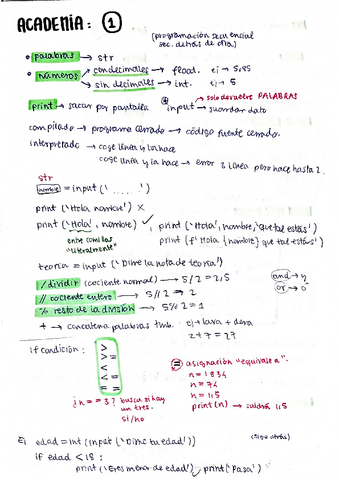 ACADEMIA: 1
(programación secuencial
sec. detras de otra)
• palabras → str
• números → con decimales → float. ej → 5,85
→ sin decimales → int. ej → 5
solo devuelve PALABRAS
print → sacar por pantalla * input → guardar dato
compilado → programa cerrado → código fuente cerrado.
interpretado → coge línea y la hace
coge línea y la hace → error 3 línea pero hace hasta 2.
str
nombre = input ('......')
print ('Hola, nombre') X
print ('Hola', nombre) ✓, print ('Hola', nombre, 'que tal estás')
entre comillas print (f'Hola {nombre} que tal estás')
"literalmente"
teoria = input ('Dime la nota de teoría')
/ dividir (cociente normal) → 5/2 = 2,5
// cociente entero → 5//2 → 2
% resto de la división → 5%2 = 1
and → y
or → o
+ → concatena palabras tmb. ej → lava + dora
2+7 = 27
if condición:
>
>=
<
<=
==
= asignación "equivale a".
n = 1834
n = 74
n = 1,5
print (n) → saldrá 1,5
¿n == 3? busca si hay
un tres.
si/no
Ej edad = int (input ('Dime tu edad'))
(sigue atrás)
if edad < 18:
print ('Eres menor de edad'), print ('Pasa')